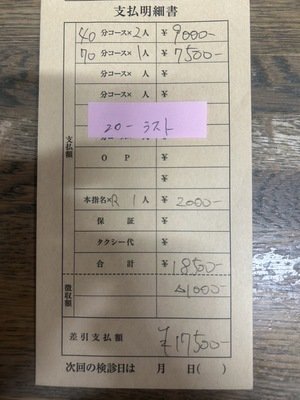 支払明細書
40 分コース×2人 ¥ 9000-
70 分コース×1人 ¥ 7500-
分コース× 人 ¥
分コース× 人 ¥
20-ラスト
O P ¥
本指名×R 1人 ¥ 2000-
保証 ¥
タクシー代 ¥
合計 ¥ 18500-
△1000-
差引支払額 ¥17500-
次回の検診日は 月 日( )
支払額
徴収額